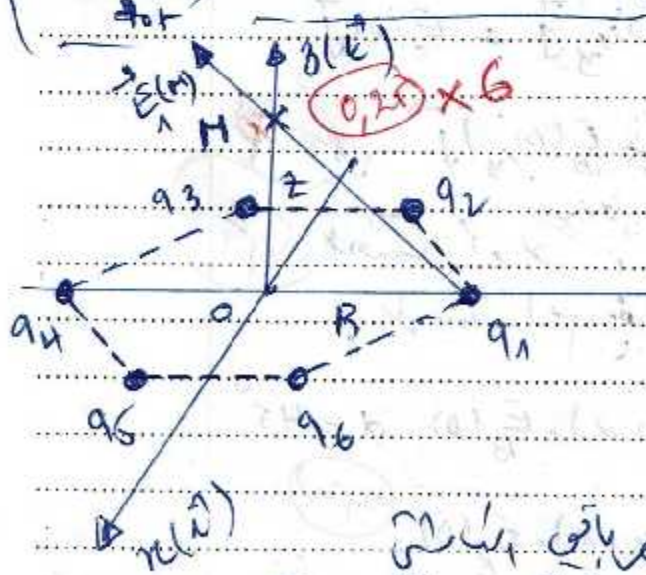 z(k⃗)
E⃗₁(M)
M
0,25 × 6
q3
z
q2
q4
O
R
q1
q5
q6
x(i⃗)